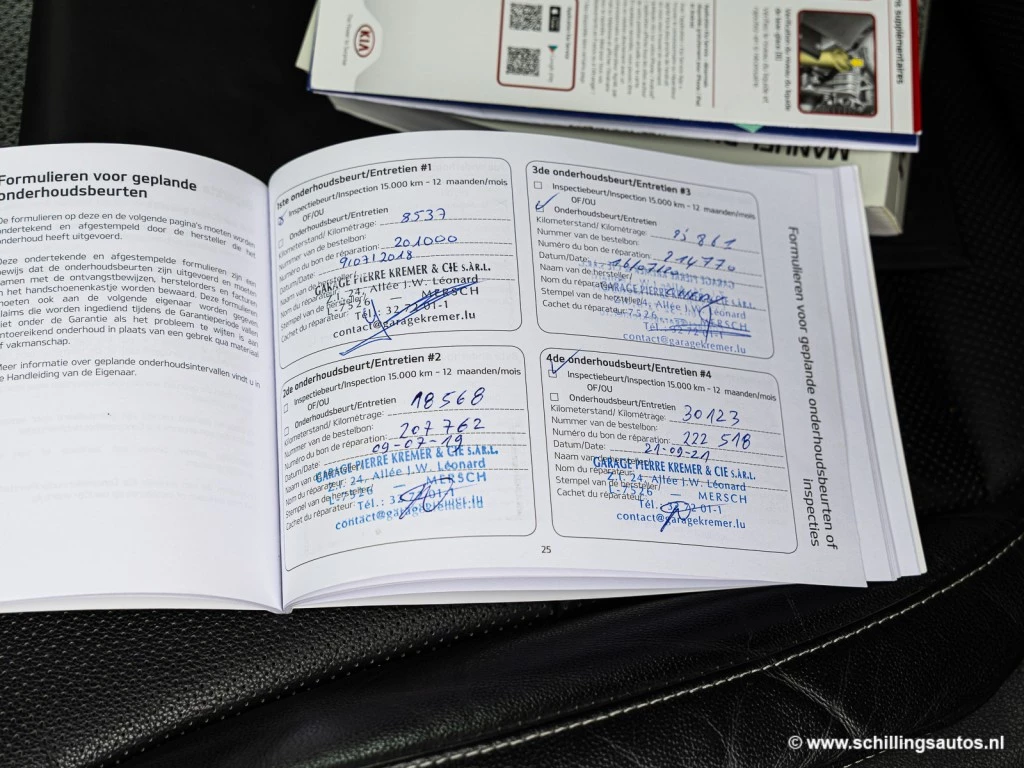 KIA
The Power to Surprise
supplémentaires
MANUEL
Formulieren voor geplande
onderhoudsbeurten
De formulieren op deze en de volgende pagina's moeten worden
ondertekend en afgestempeld door de hersteller die het
onderhoud heeft uitgevoerd.
Deze ondertekende en afgestempelde formulieren zijn een
bewijs dat de onderhoudsbeurten zijn uitgevoerd en moeten
samen met de ontvangstbewijzen, herstelorders en facturen
in het handschoenenkastje worden bewaard. Deze formulieren
moeten ook aan de volgende eigenaar worden gegeven.
Claims die worden ingediend tijdens de Garantieperiode vallen
niet onder de Garantie als het probleem te wijten is aan
ontoereikend onderhoud in plaats van een gebrek qua materiaal
of vakmanschap.
Meer informatie over geplande onderhoudsintervallen vindt u in
de Handleiding van de Eigenaar.
1ste onderhoudsbeurt/Entretien #1
Inspectiebeurt/Inspection 15.000 km - 12 maanden/mois
OF/OU
Onderhoudsbeurt/Entretien
Kilometerstand/ Kilométrage: 8537
Nummer van de bestelbon:
Numéro du bon de réparation: 201000
Datum/Date: 9/07/2018
Naam van de hersteller/
Nom du réparateur:
Stempel van de hersteller/
Cachet du réparateur:
GARAGE PIERRE KREMER & CIE S.À R.L.
Z.I. 24, Allée J.W. Léonard
L-7526 — MERSCH
Tél.: 32 72 01-1
contact@garagekremer.lu
2de onderhoudsbeurt/Entretien #2
Inspectiebeurt/Inspection 15.000 km - 12 maanden/mois
OF/OU
Onderhoudsbeurt/Entretien
Kilometerstand/ Kilométrage: 18568
Nummer van de bestelbon:
Numéro du bon de réparation: 207762
Datum/Date: 09-07-19
Naam van de hersteller/
Nom du réparateur:
Stempel van de hersteller/
Cachet du réparateur:
GARAGE PIERRE KREMER & CIE S.À R.L.
Z.I. 24, Allée J.W. Léonard
L-7526 — MERSCH
Tél.: 32 72 01-1
contact@garagekremer.lu
3de onderhoudsbeurt/Entretien #3
Inspectiebeurt/Inspection 15.000 km - 12 maanden/mois
OF/OU
Onderhoudsbeurt/Entretien
Kilometerstand/ Kilométrage:
Nummer van de bestelbon:
Numéro du bon de réparation: 214770
Datum/Date:
Naam van de hersteller/
Nom du réparateur:
Stempel van de hersteller/
Cachet du réparateur:
Allée J.W. Léonard
7526 MERSCH
Tél.:
contact@garagekremer.lu
4de onderhoudsbeurt/Entretien #4
Inspectiebeurt/Inspection 15.000 km - 12 maanden/mois
OF/OU
Onderhoudsbeurt/Entretien
Kilometerstand/ Kilométrage: 30123
Nummer van de bestelbon:
Numéro du bon de réparation: 222518
Datum/Date: 21-09-21
Naam van de hersteller/
Nom du réparateur:
Stempel van de hersteller/
Cachet du réparateur:
GARAGE PIERRE KREMER & CIE S.À R.L.
Z.I. 24, Allée J.W. Léonard
L-7526 — MERSCH
Tél.: 32 72 01-1
contact@garagekremer.lu
25
Formulieren voor geplande onderhoudsbeurten of
inspecties
© www.schillingsautos.nl